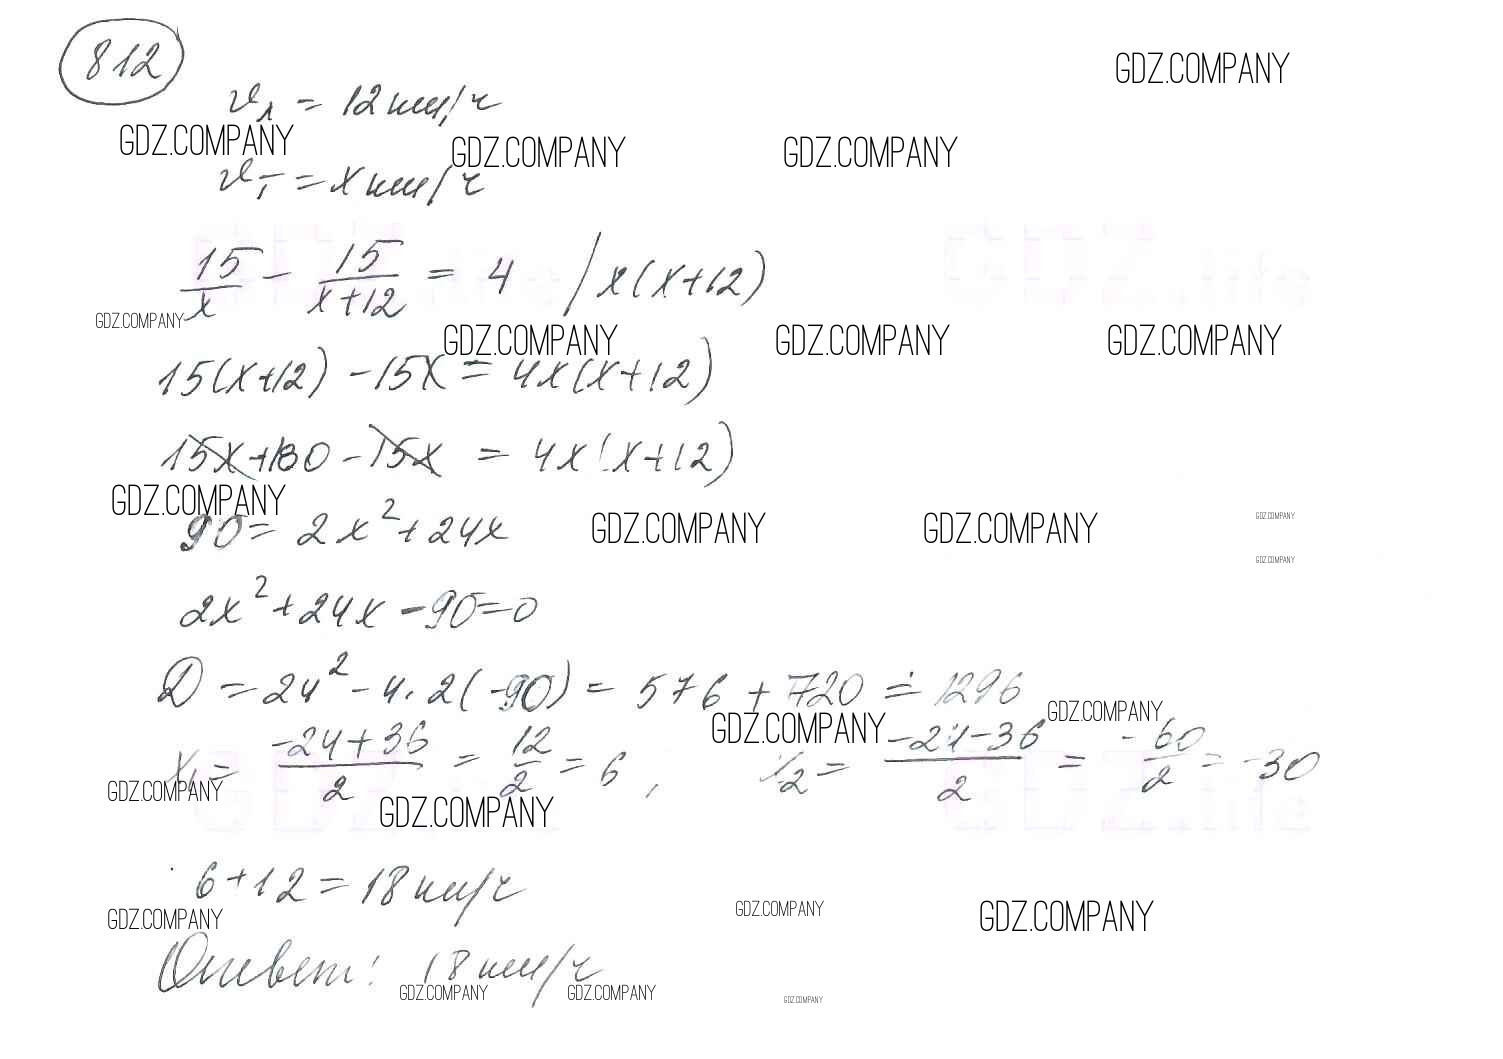 812
GDZ.COMPANY
v₁ = 12 км/ч
GDZ.COMPANY GDZ.COMPANY GDZ.COMPANY
v_т = x км/ч
15/x - 15/(x+12) = 4 / x(x+12)
GDZ.COMPANY GDZ.COMPANY GDZ.COMPANY GDZ.COMPANY
15(x+12) - 15x = 4x(x+12)
15x+180 - 15x = 4x(x+12)
GDZ.COMPANY GDZ.COMPANY GDZ.COMPANY GDZ.COMPANY
90 = 2x² + 24x
GDZ.COMPANY
2x² + 24x - 90 = 0
D = 24² - 4·2(-90) = 576 + 720 = 1296
GDZ.COMPANY GDZ.COMPANY
x₁ = (-24+36)/2 = 12/2 = 6, x₂ = (-24-36)/2 = -60/2 = -30
GDZ.COMPANY GDZ.COMPANY
6+12 = 18 км/ч
GDZ.COMPANY GDZ.COMPANY GDZ.COMPANY
Ответ: 18 км/ч
GDZ.COMPANY GDZ.COMPANY GDZ.COMPANY